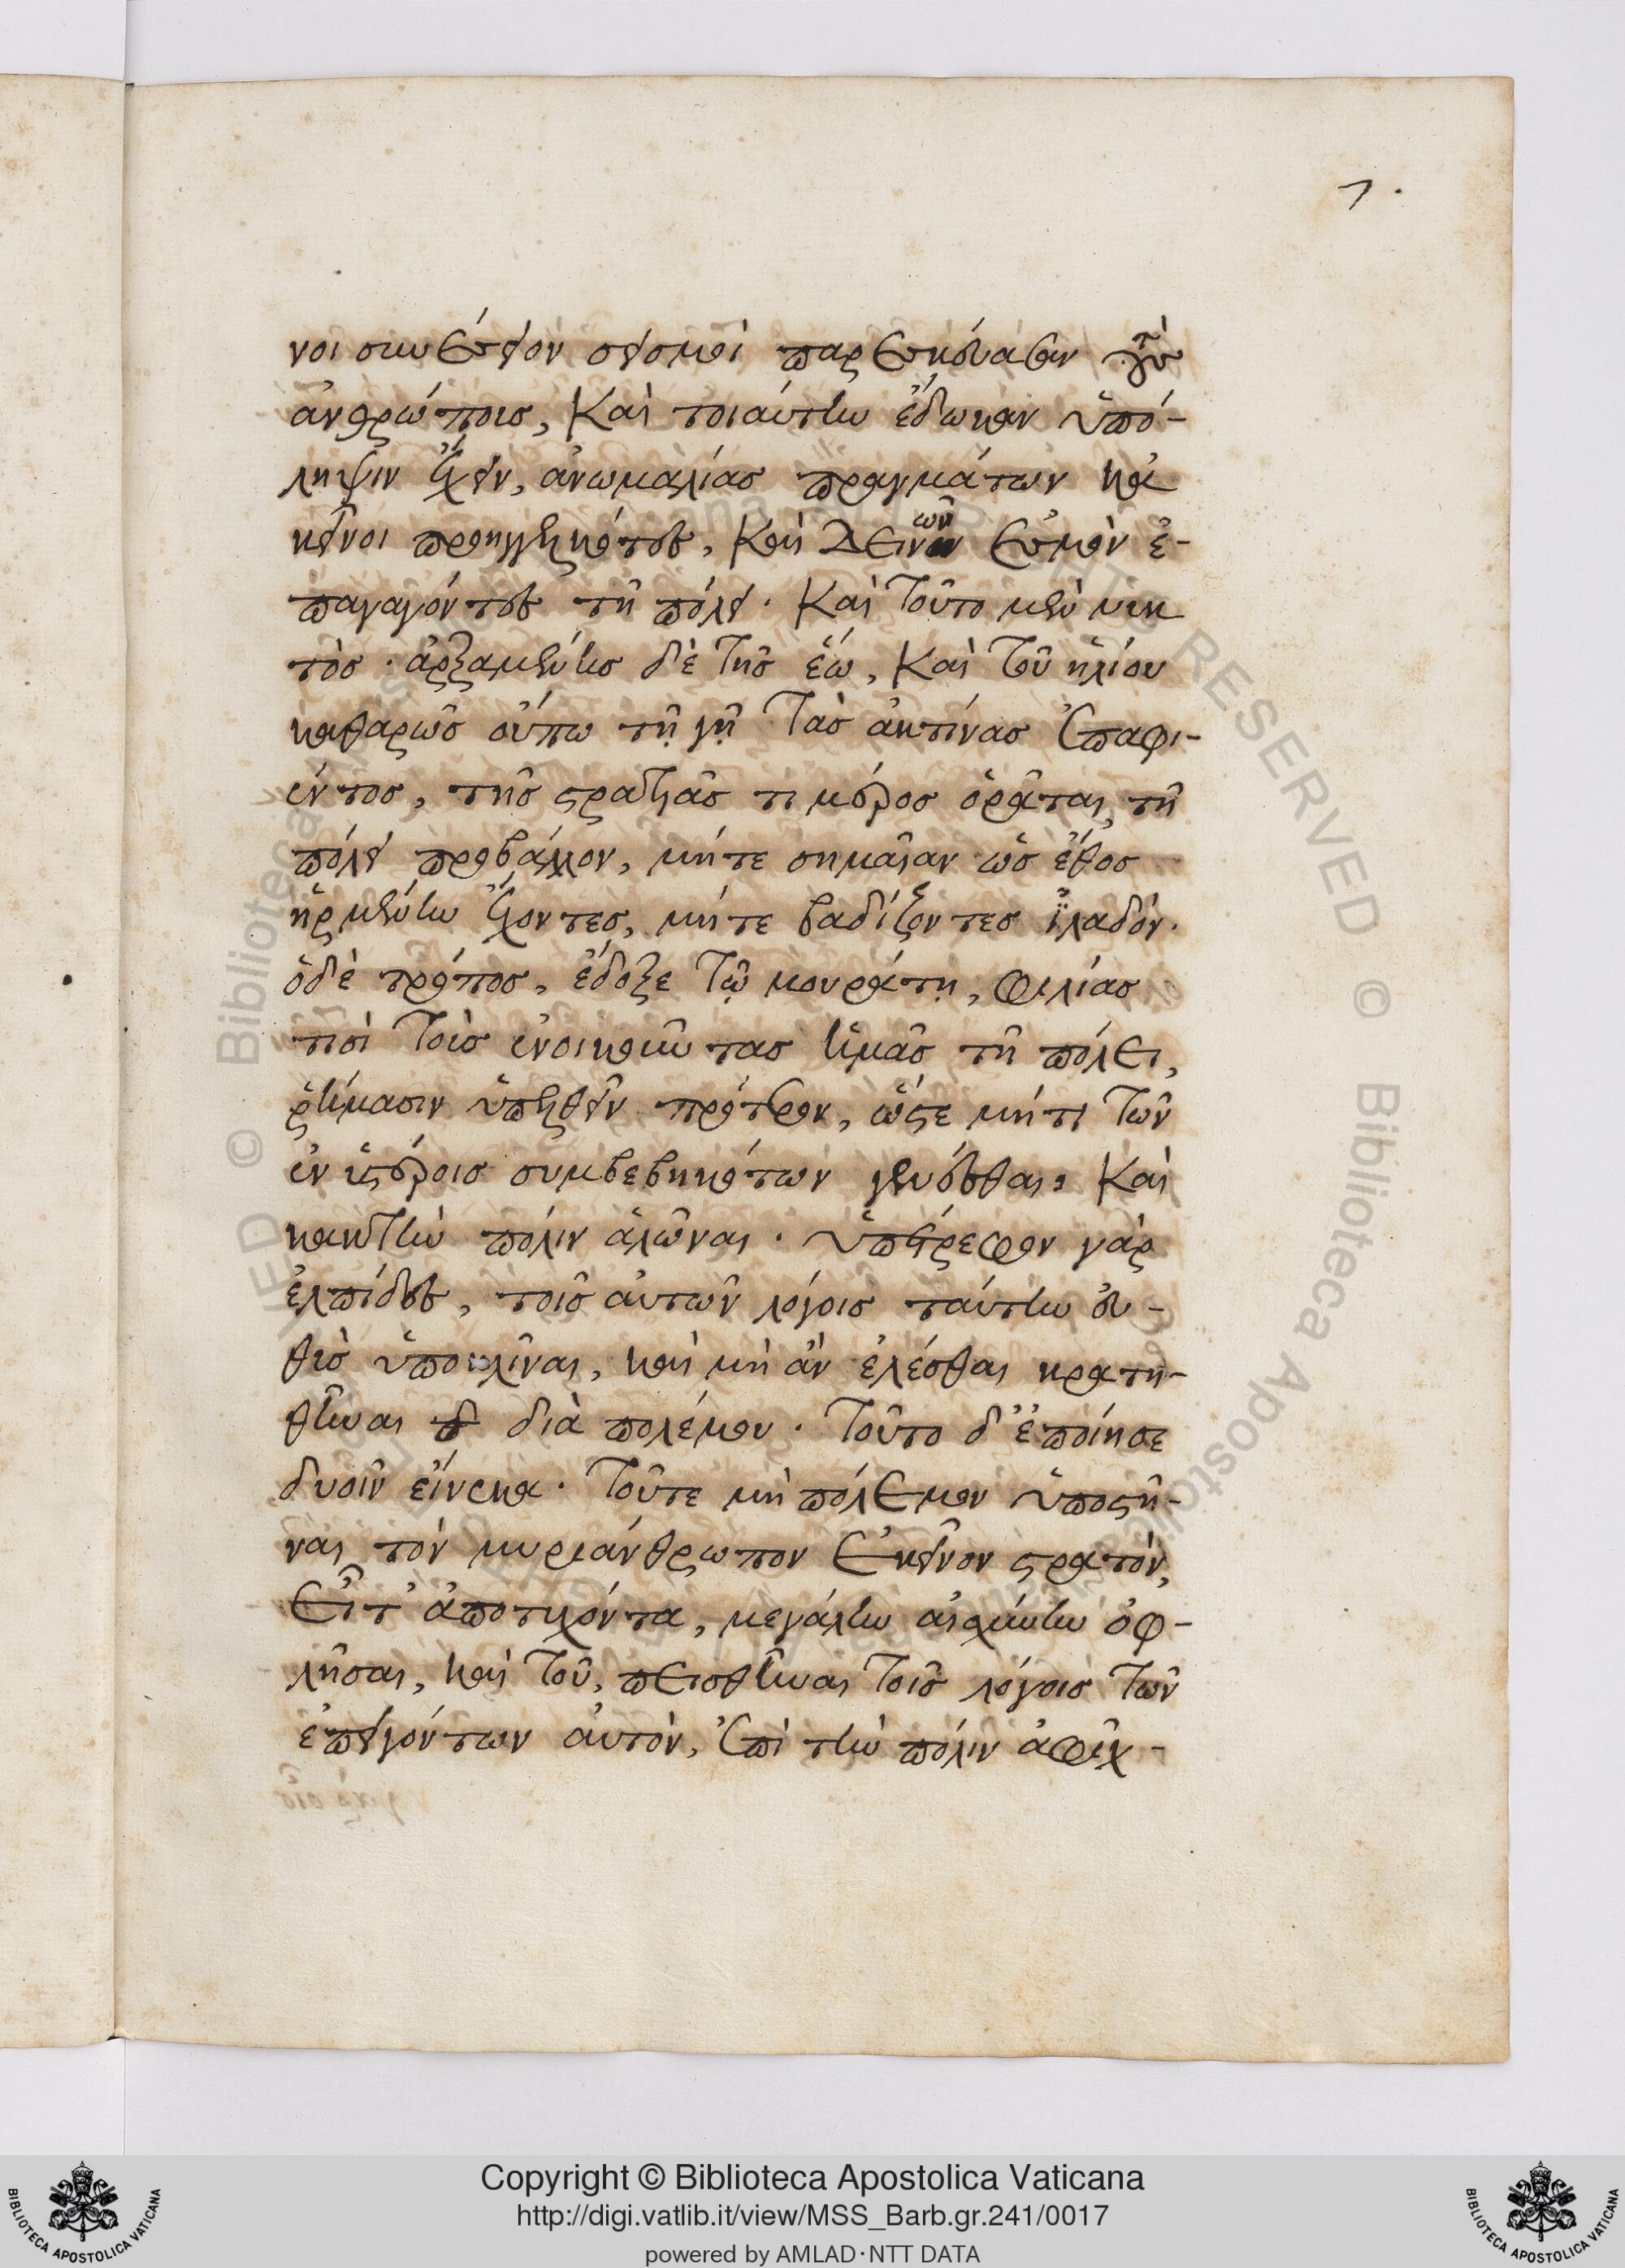 7.
νοι συνέβησαν σεισμοὶ παρεσκεύασαν τοὺς
ἀνθρώποις, Καὶ τοιαύτην ἔδωκαν ὑπό-
ληψιν ἔχειν, ἀνωμαλίας πραγμάτων κἀ
κεῖνοι προηγγελκότες, καὶ Δεινῶν ἐσμὸν ἐ-
παγαγόντες τῆ πόλει. Καὶ τοῦτο μὲν νυκ
τὸς. ἀρξαμένης δὲ τῆς ἕω, Καὶ τοῦ ἡλίου
καθαρῶς οὔπω τῇ γῇ τὰς ἀκτίνας ἐπαφι-
έντος, τῆς στρατιᾶς τι μέρος ὁρᾶται τῆ
πόλει προσβάλλον, μήτε σημαίαν ὡς ἔθος
ἠρμένην ἔχοντες, μήτε βαδίζοντες ἰλαδόν.
ὁδὲ τρόπος, ἔδοξε τῷ μουράτῃ, φιλίας
τισὶ τοὶς ἐνοικοῦντας ἡμᾶς τῆ πόλει,
ῥήμασιν ὑπελθεῖν πρότερον, ὥστε μήτι τῶν
ἐν ὑστέροις συμβεβηκότων γενέσθαι, Καὶ
κακῶς τὴν πόλιν ἁλῶναι. ὑπέτρεφον γὰρ
ἐλπίδες, τοῖς αὐτῶν λόγοις ταύτην εὐ-
θὺς ὑποκλῖναι, καὶ μὴ ἂν ἑλέσθαι κρατη-
θῆναι διὰ πολέμου. Τοῦτο δ' ἐποίησε
δυοῖν εἵνεκα. Τοῦτε μὴ πόλεμον ὑποστῆ-
ναι τὸν μυριάνθρωπον ἐκεῖνον στρατόν,
εἶτ' ἀποτυχόντα, μεγάλην αἰσχύνην ὀφ-
λῆσαι, καὶ τοῦ, πεισθῆναι τοῖς λόγοις τῶν
ἐπειγόντων αὐτὸν, ἐπὶ τὴν πόλιν ἀφῖχ-
Copyright © Biblioteca Apostolica Vaticana
http://digi.vatlib.it/view/MSS_Barb.gr.241/0017
powered by AMLAD·NTT DATA